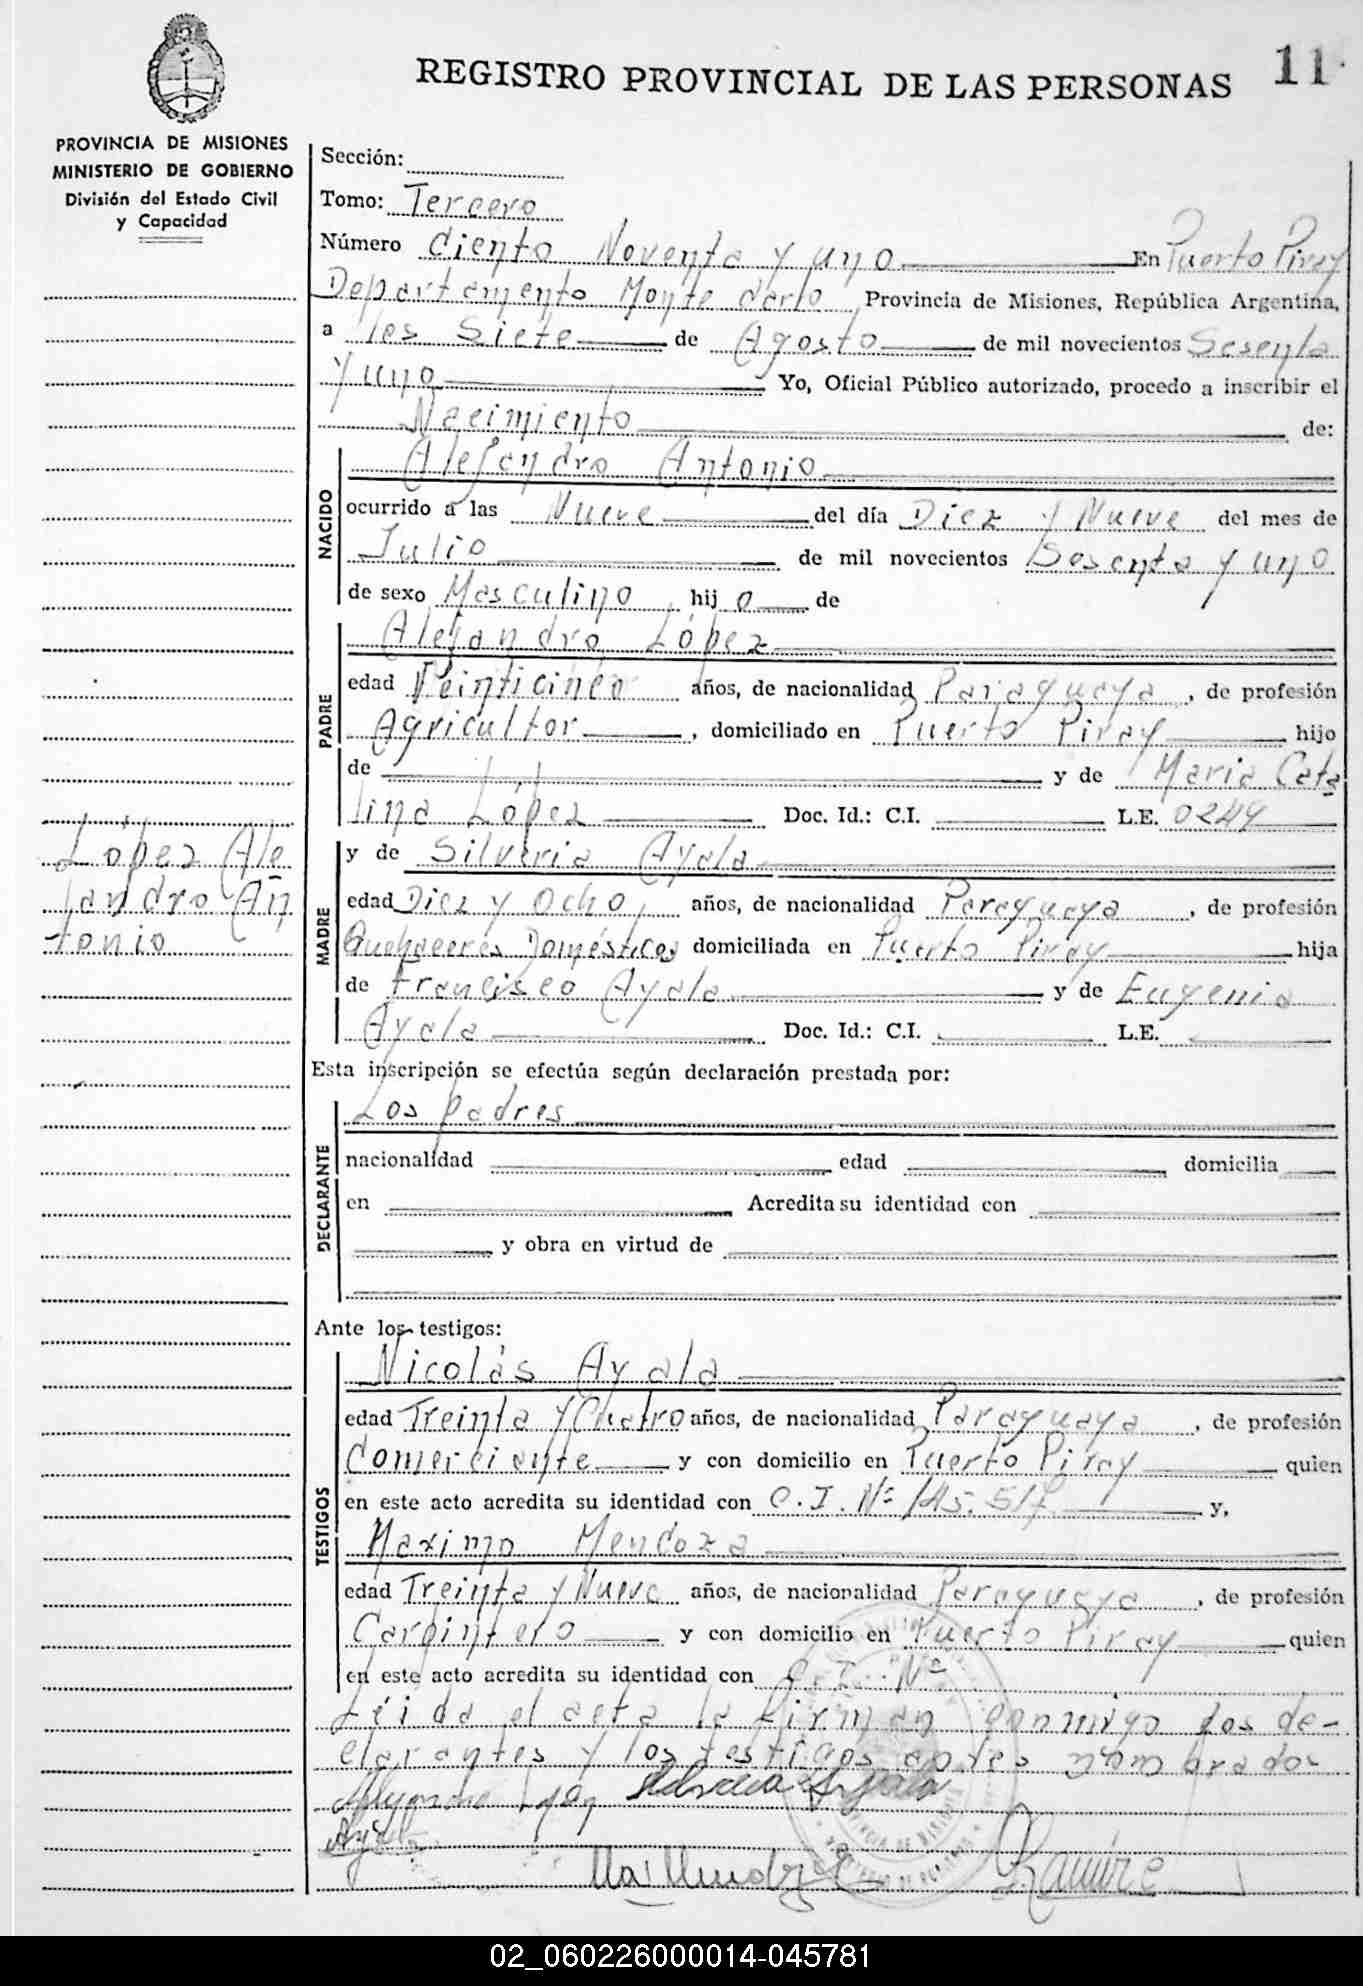 REGISTRO PROVINCIAL DE LAS PERSONAS 11
PROVINCIA DE MISIONES
MINISTERIO DE GOBIERNO
División del Estado Civil
y Capacidad
Sección:
Tomo: Tercero
Número Ciento Noventa y uno En Puerto Piray
Departamento Monte Carlo, Provincia de Misiones, República Argentina,
a les Siete de Agosto de mil novecientos Sesenta
y uno Yo, Oficial Público autorizado, procedo a inscribir el
Nacimiento de:
NACIDO
Alejandro Antonio
ocurrido a las Nueve del día Diez y Nueve del mes de
Julio de mil novecientos Sesenta y uno
de sexo Masculino, hij o de
PADRE
Alejandro López
edad Veinticinco años, de nacionalidad Paraguaya, de profesión
Agricultor, domiciliado en Puerto Piray hijo
de y de Maria Cata
lina López Doc. Id.: C.I. L.E. 0244
López Ale
jandro An
tonio
MADRE
y de Silveria Ayala
edad Diez y Ocho, años, de nacionalidad Paraguaya, de profesión
Quehaceres Domésticos domiciliada en Puerto Piray hija
de Francisco Ayala y de Eugenia
Ayala Doc. Id.: C.I. L.E.
Esta inscripción se efectúa según declaración prestada por:
DECLARANTE
Los padres
nacionalidad edad domicilia
en Acredita su identidad con
y obra en virtud de
Ante los testigos:
TESTIGOS
Nicolás Ayala
edad Treinta y Cuatro años, de nacionalidad Paraguaya, de profesión
Comerciante y con domicilio en Puerto Piray quien
en este acto acredita su identidad con C.I. Nº 145.517 y,
Maximo Mendoza
edad Treinta y Nueve años, de nacionalidad Paraguaya, de profesión
Carpintero y con domicilio en Puerto Piray quien
en este acto acredita su identidad con C.I. Nº
Léida el acta la firman conmigo los de-
clarantes y los testigos antes nombrados
Ayala
Ramire
02_060226000014-045781